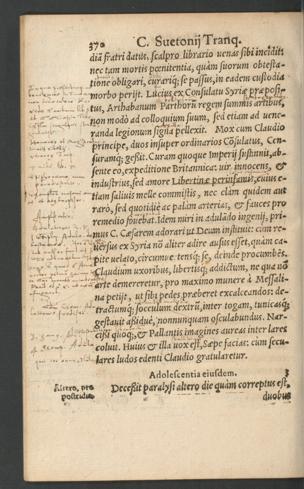 370 C. Suetonij Tranq.
diā fratri datus, scalpro librario uenas sibi incidit:
nec tam mortis pœnitentia, quàm suorum obtesta-
tione obligari, curariq; se passus, in eadem custodia
morbo perijt. Lucius ex Consulatu Syriæ præposi-
tus, Arthabanum Parthorū regem summis artibus,
non modò ad colloquium suum, sed etiam ad uene-
randa legionum signa pellexit. Mox cum Claudio
principe, duos insuper ordinarios Cōsulatus, Cen-
suramq; geßit. Curam quoque Imperij sustinuit, ab-
sente eo, expeditione Britannica: uir innocens, &
industrius, sed amore Libertinæ perinfamis, cuius e-
tiam saliuis melle commistis, nec clam quidem aut
rarò, sed quotidie ac palàm arterias, & fauces pro
remedio fouebat. Idem miri in adulādo ingenij, pri-
mus C. Cæsarem adorari ut Deum instituit: cum re-
uersus ex Syria nō aliter adire ausus esset, quàm ca-
pite uelato, circumuertensq; se, deinde procumbēs.
Claudium uxoribus, libertisq; addictum, ne qua nō
arte demereretur, pro maximo munere à Messali-
na petijt, ut sibi pedes præberet excalceandos: de-
tractumq; socculum dextrū, inter togam, tunicasq;
gestauit aßiduè, nonnunquam osculabundus. Nar-
cißi quoq;, & Pallantis imagines aureas inter lares
coluit. Huius & illa uox est, Sæpe facias: cum secu-
lares ludos edenti Claudio gratularetur.
Adolescentia eiusdem. 3
Altero, pro Deceßit paralysi altero die quàm correptus est,
postridie. duobus